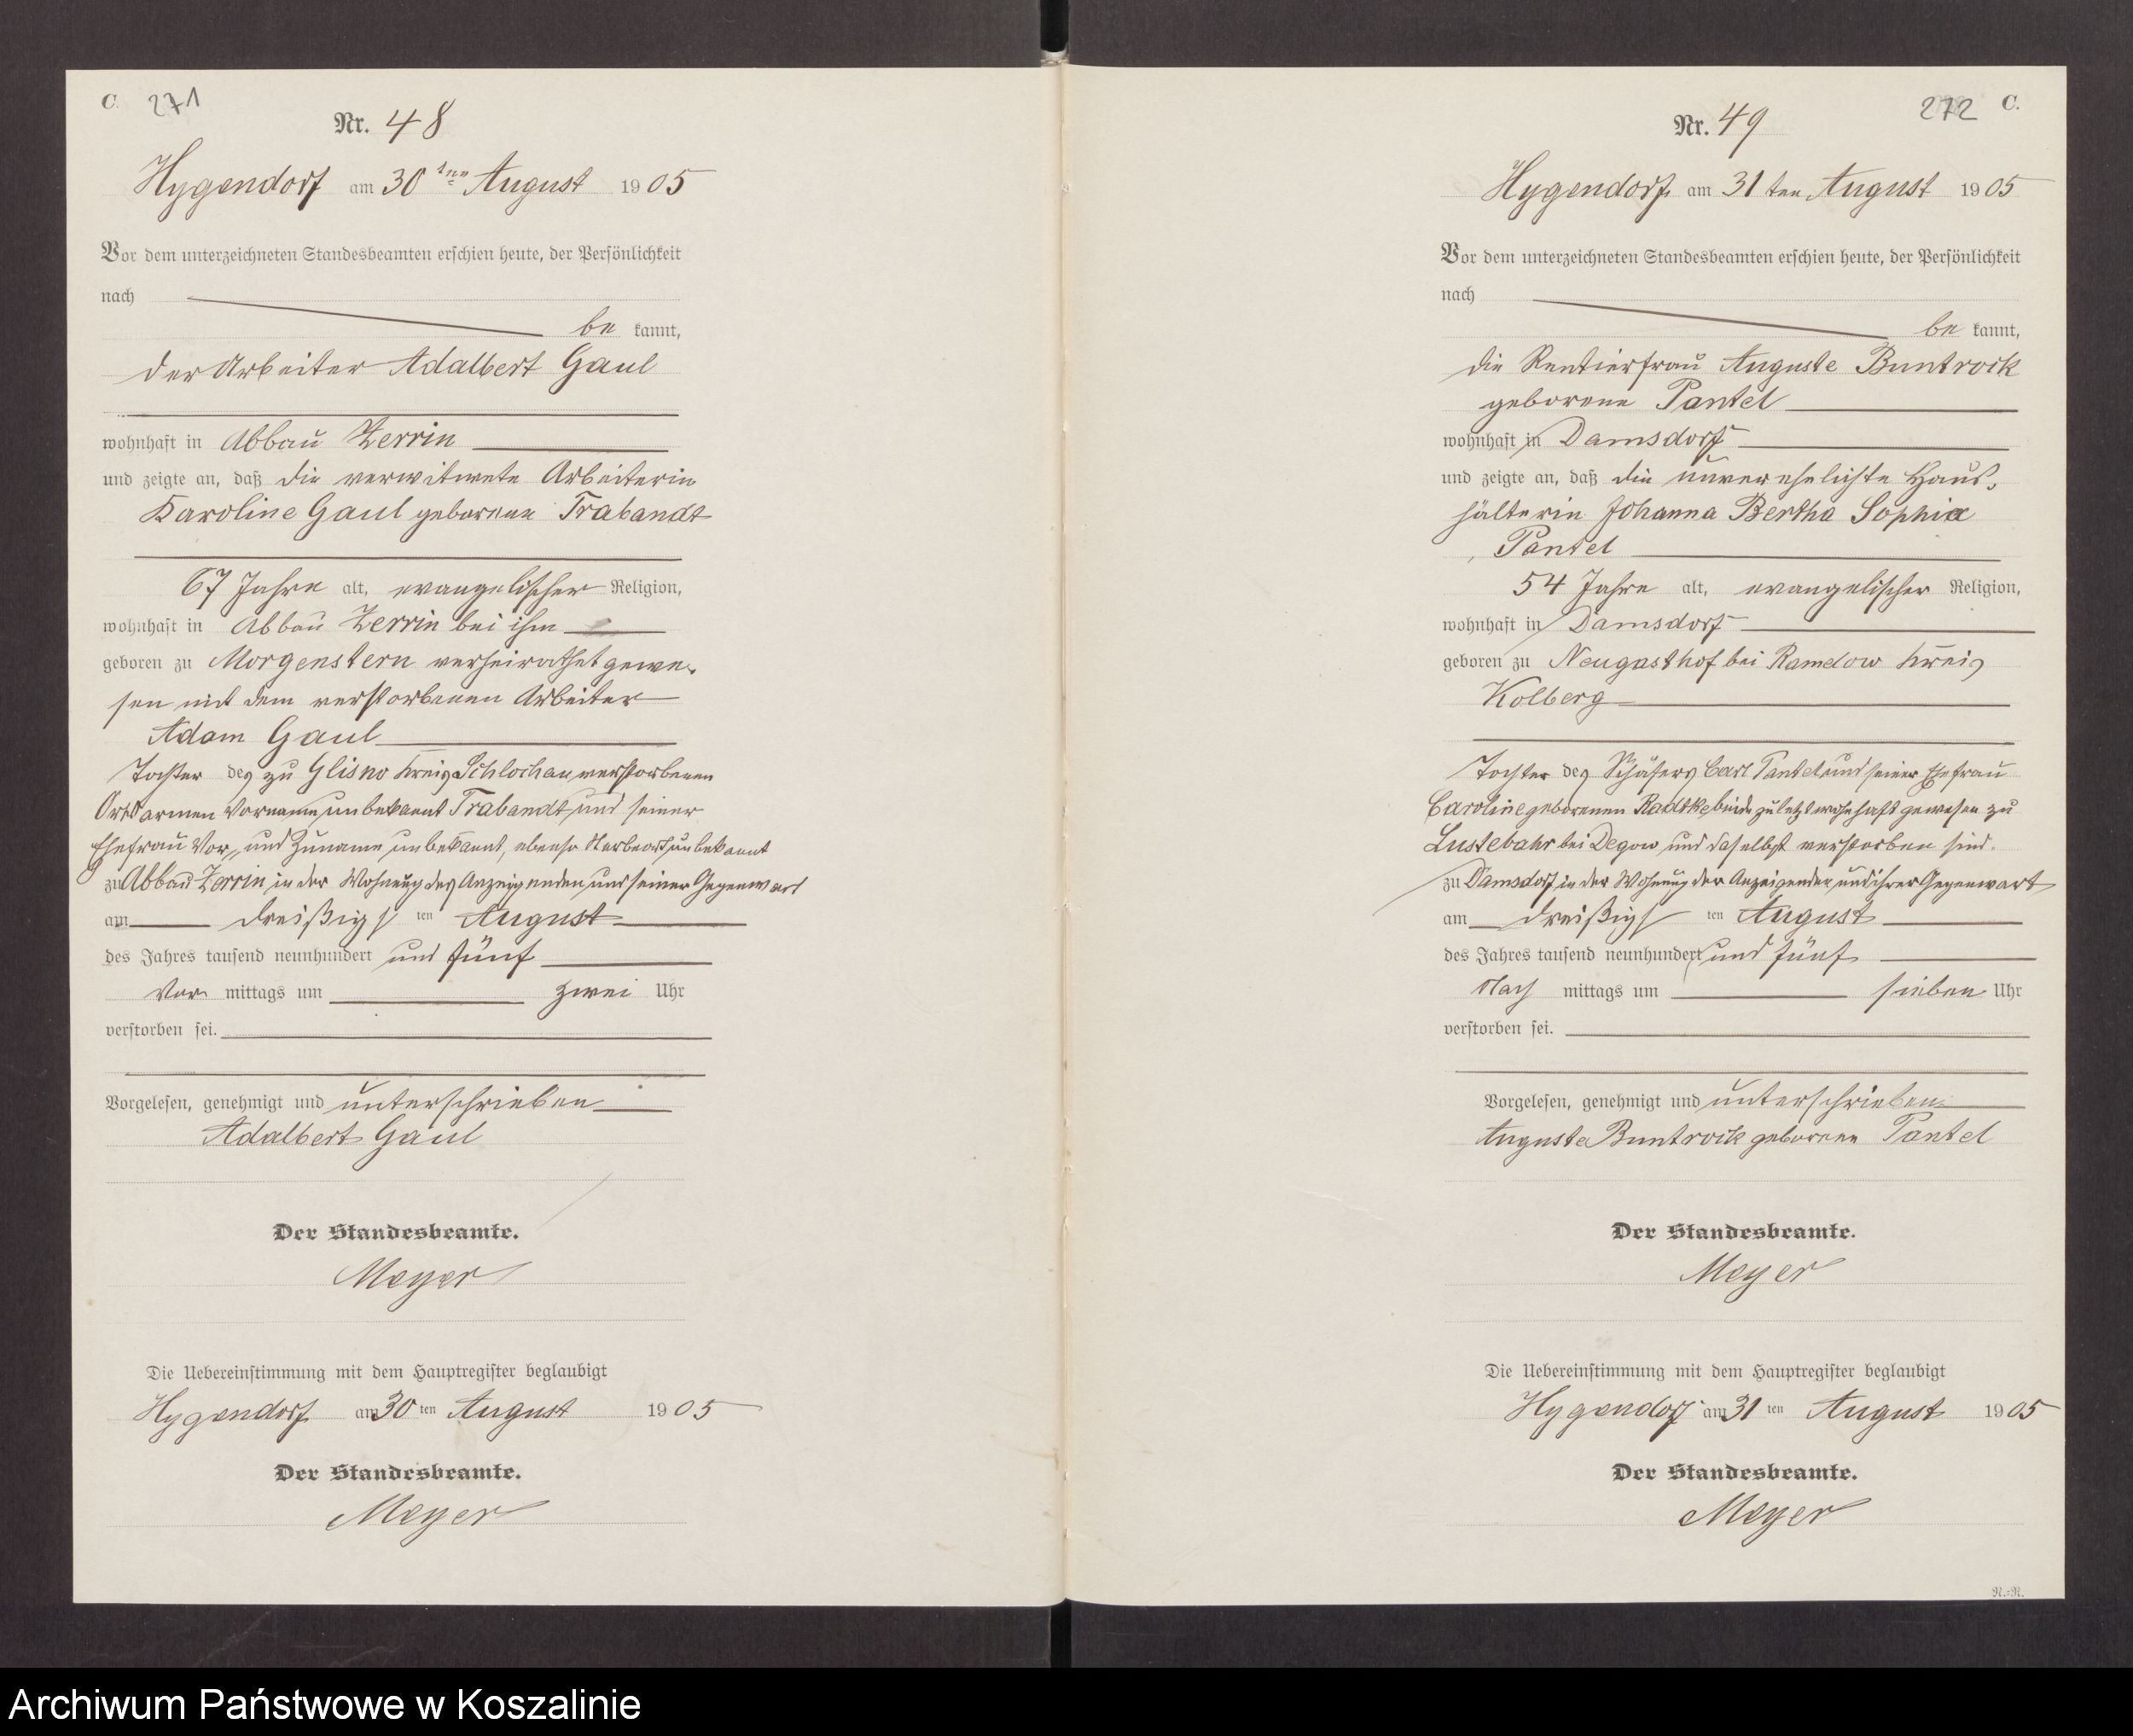 C. 271
Nr. 48
Hygendorf am 30ten August 1905
Vor dem unterzeichneten Standesbeamten erschien heute, der Persönlichkeit
nach
be kannt,
der Arbeiter Adalbert Gaul
wohnhaft in Abbau Zerrin
und zeigte an, daß die verwitwete Arbeiterin
Karoline Gaul geborene Trabandt
67 Jahre alt, evangelischer Religion,
wohnhaft in Abbau Zerrin bei ihm
geboren zu Morgenstern verheirathet gewe-
sen mit dem verstorbenen Arbeiter
Adam Gaul
Tochter des zu Glisno Kreis Schlochau verstorbenen
Ortsarmen Vorname unbekannt Trabandt und seiner
Ehefrau Vor- und Zuname unbekannt, ebenso Sterbeort unbekannt
zu Abbau Zerrin in der Wohnung des Anzeigenden und seiner Gegenwart
am dreißigs ten August
des Jahres tausend neunhundert und fünf
Vor mittags um zwei Uhr
verstorben sei.
Vorgelesen, genehmigt und unterschrieben
Adalbert Gaul
Der Standesbeamte.
Meyer
Die Uebereinstimmung mit dem Hauptregister beglaubigt
Hygendorf am 30 ten August 1905
Der Standesbeamte.
Meyer
272 C.
Nr. 49
Hygendorf am 31ten August 1905
Vor dem unterzeichneten Standesbeamten erschien heute, der Persönlichkeit
nach
be kannt,
die Rentierfrau Auguste Buntrock
geborene Pantel
wohnhaft in Damsdorf
und zeigte an, daß die unverehelichte Haus-
hälterin Johanna Bertha Sophie
Pantel
54 Jahre alt, evangelischer Religion,
wohnhaft in Damsdorf
geboren zu Neugasthof bei Ramelow Kreis
Kolberg
Tochter des Schäfers Carl Pantel und seiner Ehefrau
Caroline geborenen Radtke beide zuletzt wohnhaft gewesen zu
Lustebahr bei Degow und daselbst verstorben sind.
zu Damsdorf in der Wohnung der Anzeigenden und ihrer Gegenwart
am dreißigs ten August
des Jahres tausend neunhundert und fünf
Nach mittags um sieben Uhr
verstorben sei.
Vorgelesen, genehmigt und unterschrieben
Auguste Buntrock geborene Pantel
Der Standesbeamte.
Meyer
Die Uebereinstimmung mit dem Hauptregister beglaubigt
Hygendorf am 31 ten August 1905
Der Standesbeamte.
Meyer
N.-N.
Archiwum Państwowe w Koszalinie